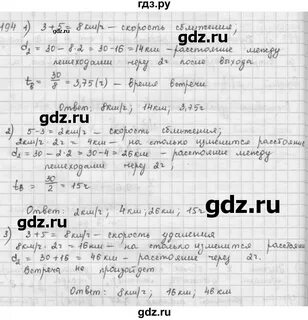 194 1) 3+5 = 8 км/ч – скорость сближения;
d₂ = 30 – 8·2 = 30-16 = 14 км – расстояние между
пешеходами через 2ч после выхода
tв = 30/8 = 3,75(ч) – время встречи
Ответ: 8км/ч; 14км; 3,75ч
gdz.ru
2) 5-3 = 2км/ч – скорость сближения;
2км/ч · 2ч = 4км – на столько изменится расстояние
d₂ = 30 – 2·2 = 30-4 = 26км – расстояние между
пешеходами через 2ч;
tв = 30/2 = 15ч
Ответ: 2км/ч; 4км; 26км; 15ч
gdz.ru
3) 3+5 = 8км/ч – скорость удаления
8км/ч · 2ч = 16км – на столько изменится расстояние
d₂ = 30+16 = 46км – расстояние через 2ч.
Встреча не произойдет
Ответ: 8км/ч; 16км; 46км
gdz.ru